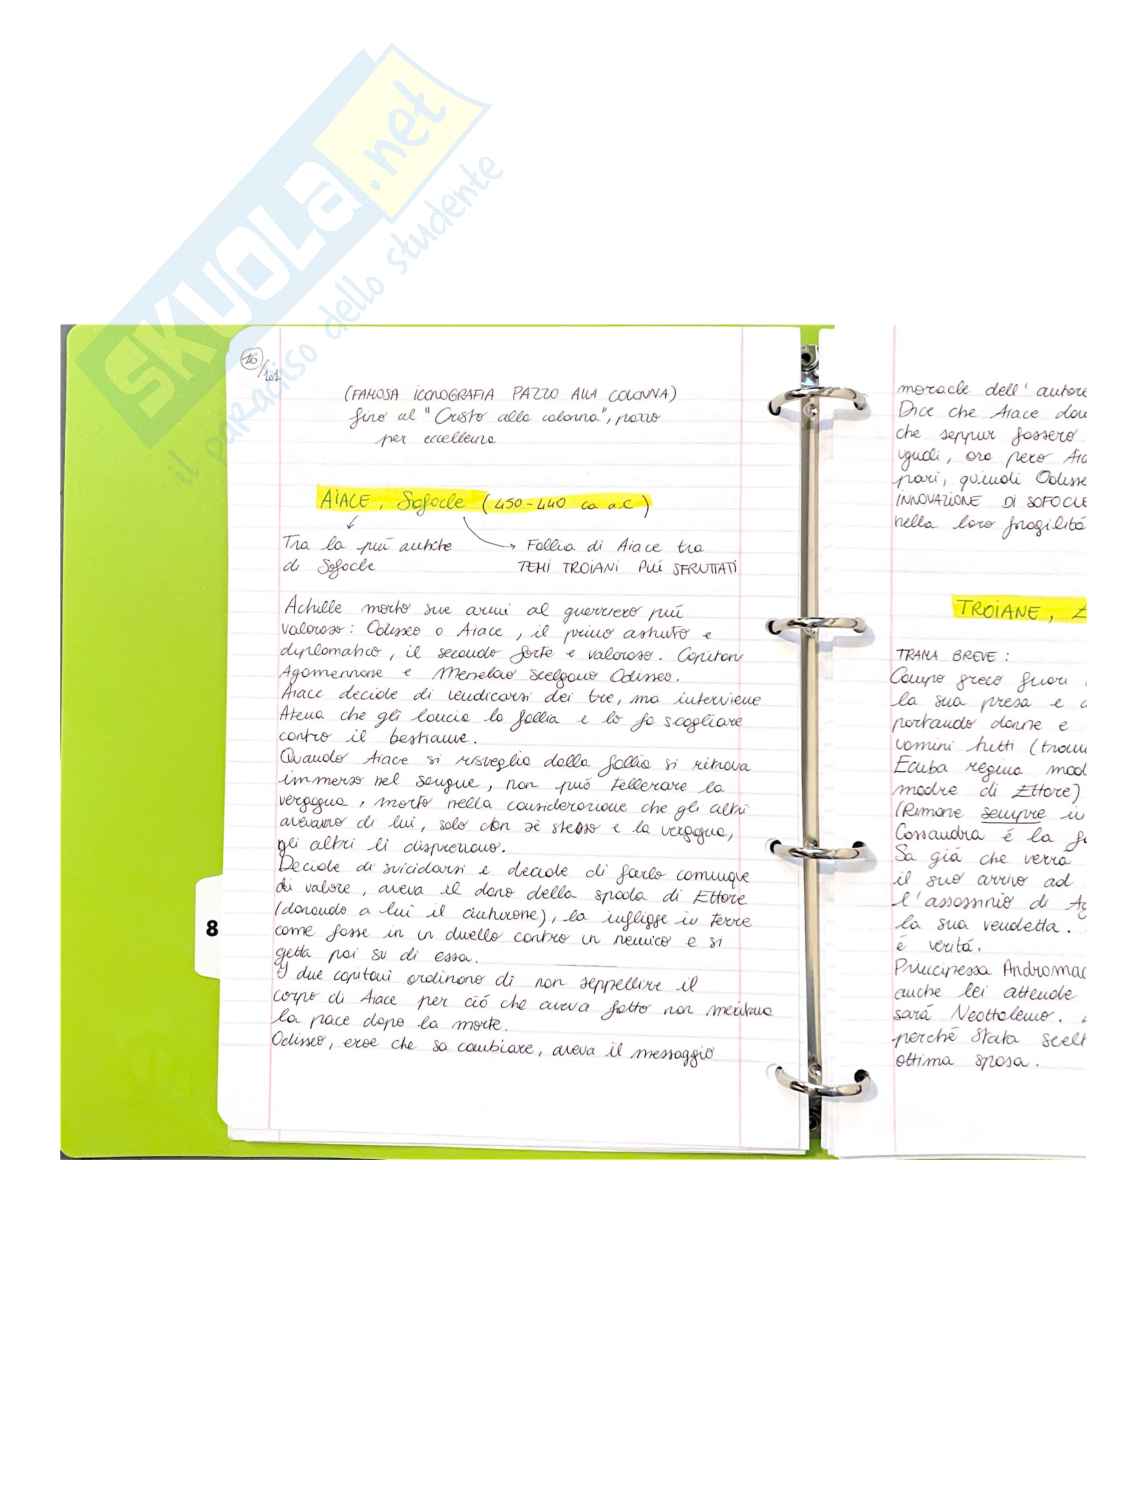 SKUOLA.net
il paradiso dello studente
26/101
(FAMOSA ICONOGRAFIA PAZZO ALLA COLONNA)
fino al "Cristo alla colonna", pazzo
per eccellenza
AIACE, Sofocle (450-440 ca a.C)
Tra la più antiche
di Sofocle
Follia di Aiace tra
TEMI TROIANI PIÚ SFRUTTATI
Achille morto sue armi al guerriero più
valoroso: Odisseo o Aiace, il primo astuto e
diplomatico, il secondo forte e valoroso. Capitani
Agamennone e Menelao scelgono Odisseo.
Aiace decide di vendicarsi dei tre, ma interviene
Atena che gli lancia la follia e lo fa scagliare
contro il bestiame.
Quando Aiace si risveglia dalla follia si ritrova
immerso nel sangue, non può tellerare la
vergogna, morto nella considerazione che gli altri
avevano di lui, solo con sè stesso e la vergogna,
gli altri li disprezzano.
Decide di suicidarsi e decide di farlo comunque
di valore, aveva il dono della spada di Ettore
(donando a lui il cinturone), la infligge in terre
come fosse in un duello contro un nemico e si
getta poi su di essa.
I due capitani ordinano di non seppellire il
corpo di Aiace per ciò che aveva fatto non meritava
la pace dopo la morte.
Odisseo, eroe che sa cambiare, aveva il messaggio
8
moracle dell'autore
Dice che Aiace
che seppur fossero
uguali, ora però
pari, quindi Odisse
INNOVAZIONE DI SOFOCLE
nella loro fragilità
TROIANE, E
TRAMA BREVE:
Campo greco fuori
la sua presa e
portando donne e
uomini tutti
Ecuba regina mad
madre di Ettore)
(Rimane sempre in
Cassandra è la
Sa già che verrà
il suo arrivo ad
l'assassinio di Ag
la sua vendetta.
è verità.
Principessa Andromac
anche lei attende
sarà Neottolemo.
perché stata scelt
ottima sposa.